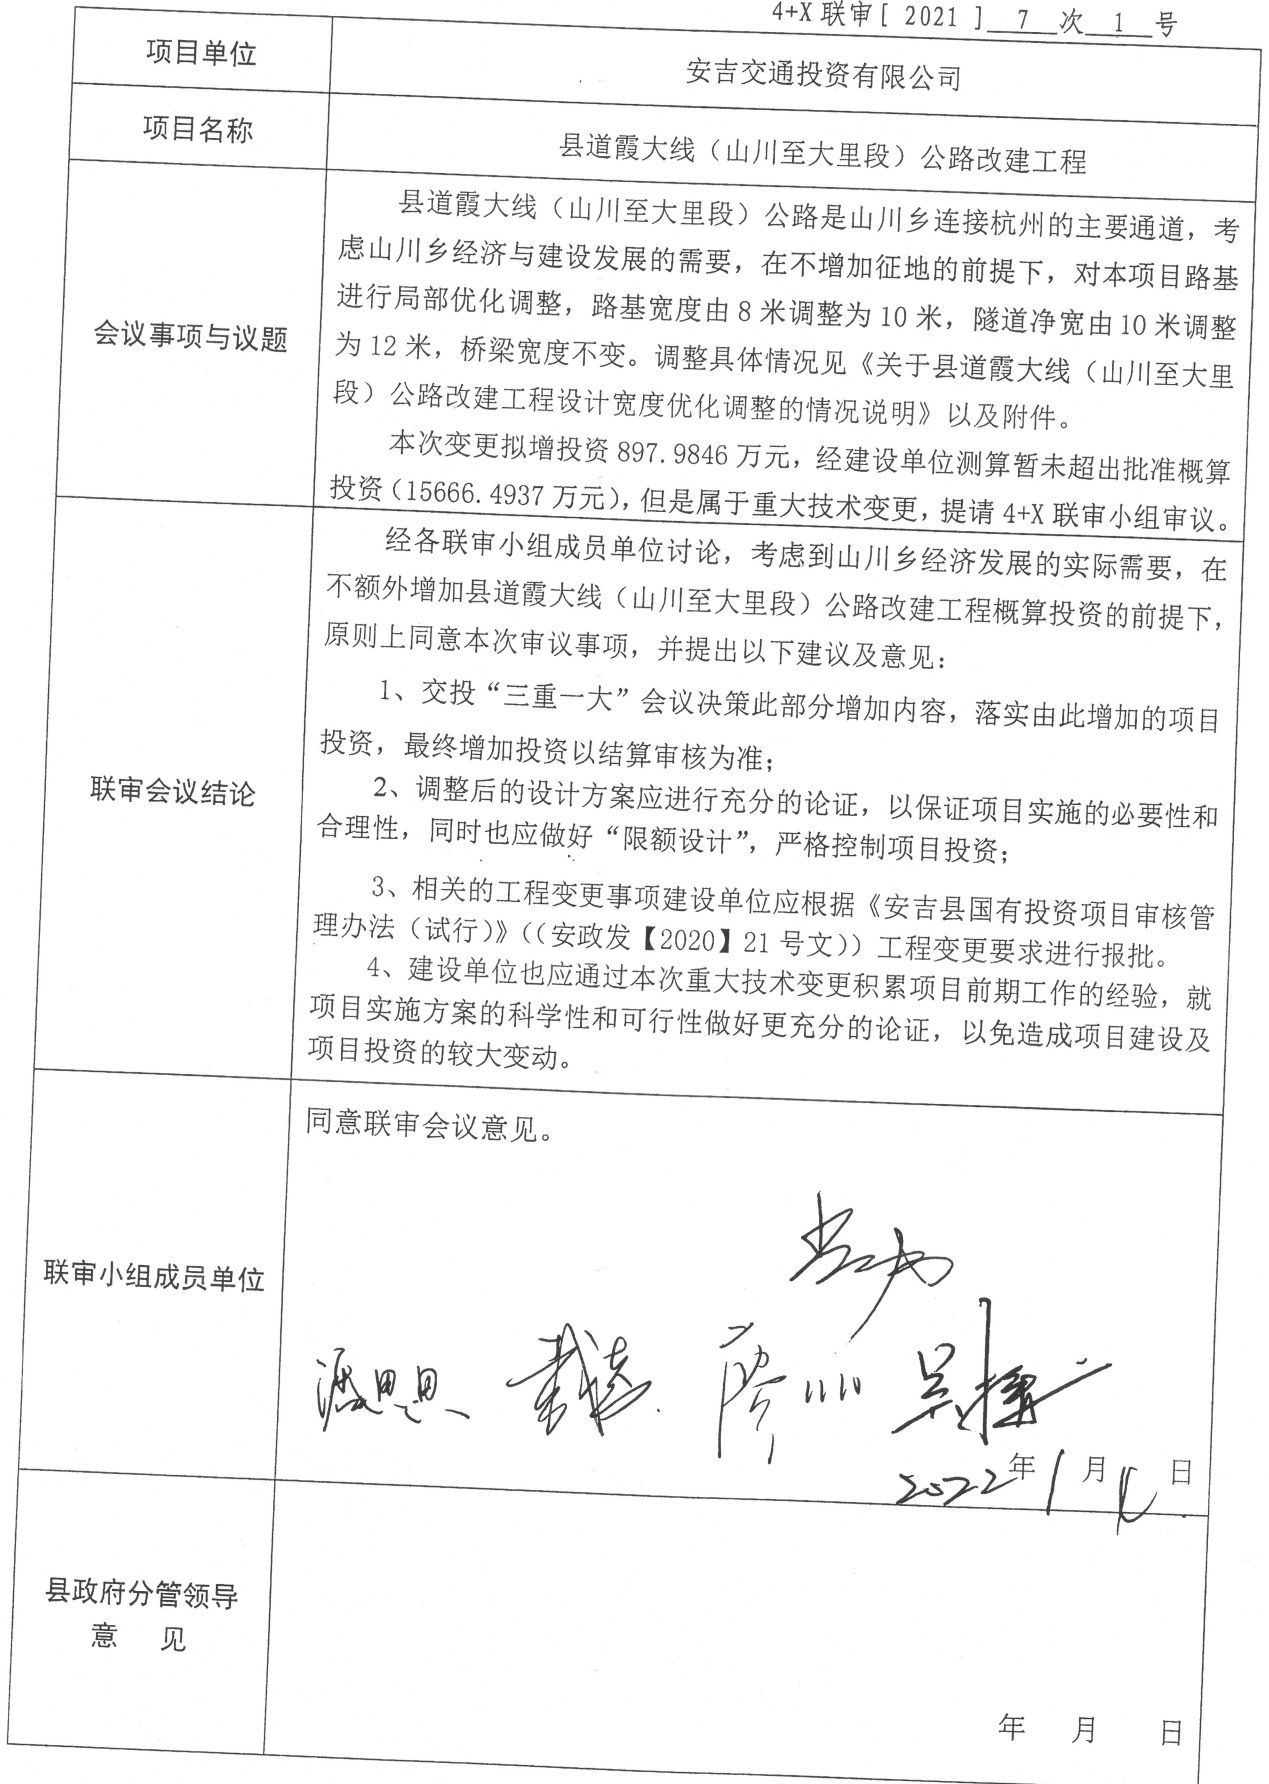 4+X 联审[ 2021 ] 7 次 1 号
项目单位
安吉交通投资有限公司
项目名称
县道霞大线（山川至大里段）公路改建工程
会议事项与议题
县道霞大线（山川至大里段）公路是山川乡连接杭州的主要通道，考
虑山川乡经济与建设发展的需要，在不增加征地的前提下，对本项目路基
进行局部优化调整，路基宽度由 8 米调整为 10 米，隧道净宽由 10 米调整
为 12 米，桥梁宽度不变。调整具体情况见《关于县道霞大线（山川至大里
段）公路改建工程设计宽度优化调整的情况说明》以及附件。
本次变更拟增投资 897.9846 万元，经建设单位测算暂未超出批准概算
投资（15666.4937 万元），但是属于重大技术变更，提请 4+X 联审小组审议。
联审会议结论
经各联审小组成员单位讨论，考虑到山川乡经济发展的实际需要，在
不额外增加县道霞大线（山川至大里段）公路改建工程概算投资的前提下，
原则上同意本次审议事项，并提出以下建议及意见：
1、交投“三重一大”会议决策此部分增加内容，落实由此增加的项目
投资，最终增加投资以结算审核为准；
2、调整后的设计方案应进行充分的论证，以保证项目实施的必要性和
合理性，同时也应做好“限额设计”，严格控制项目投资；
3、相关的工程变更事项建设单位应根据《安吉县国有投资项目审核管
理办法（试行）》（（安政发【2020】21 号文））工程变更要求进行报批。
4、建设单位也应通过本次重大技术变更积累项目前期工作的经验，就
项目实施方案的科学性和可行性做好更充分的论证，以免造成项目建设及
项目投资的较大变动。
联审小组成员单位
同意联审会议意见。
潘思思
2022 年 1 月 日
县政府分管领导
意 见
年 月 日